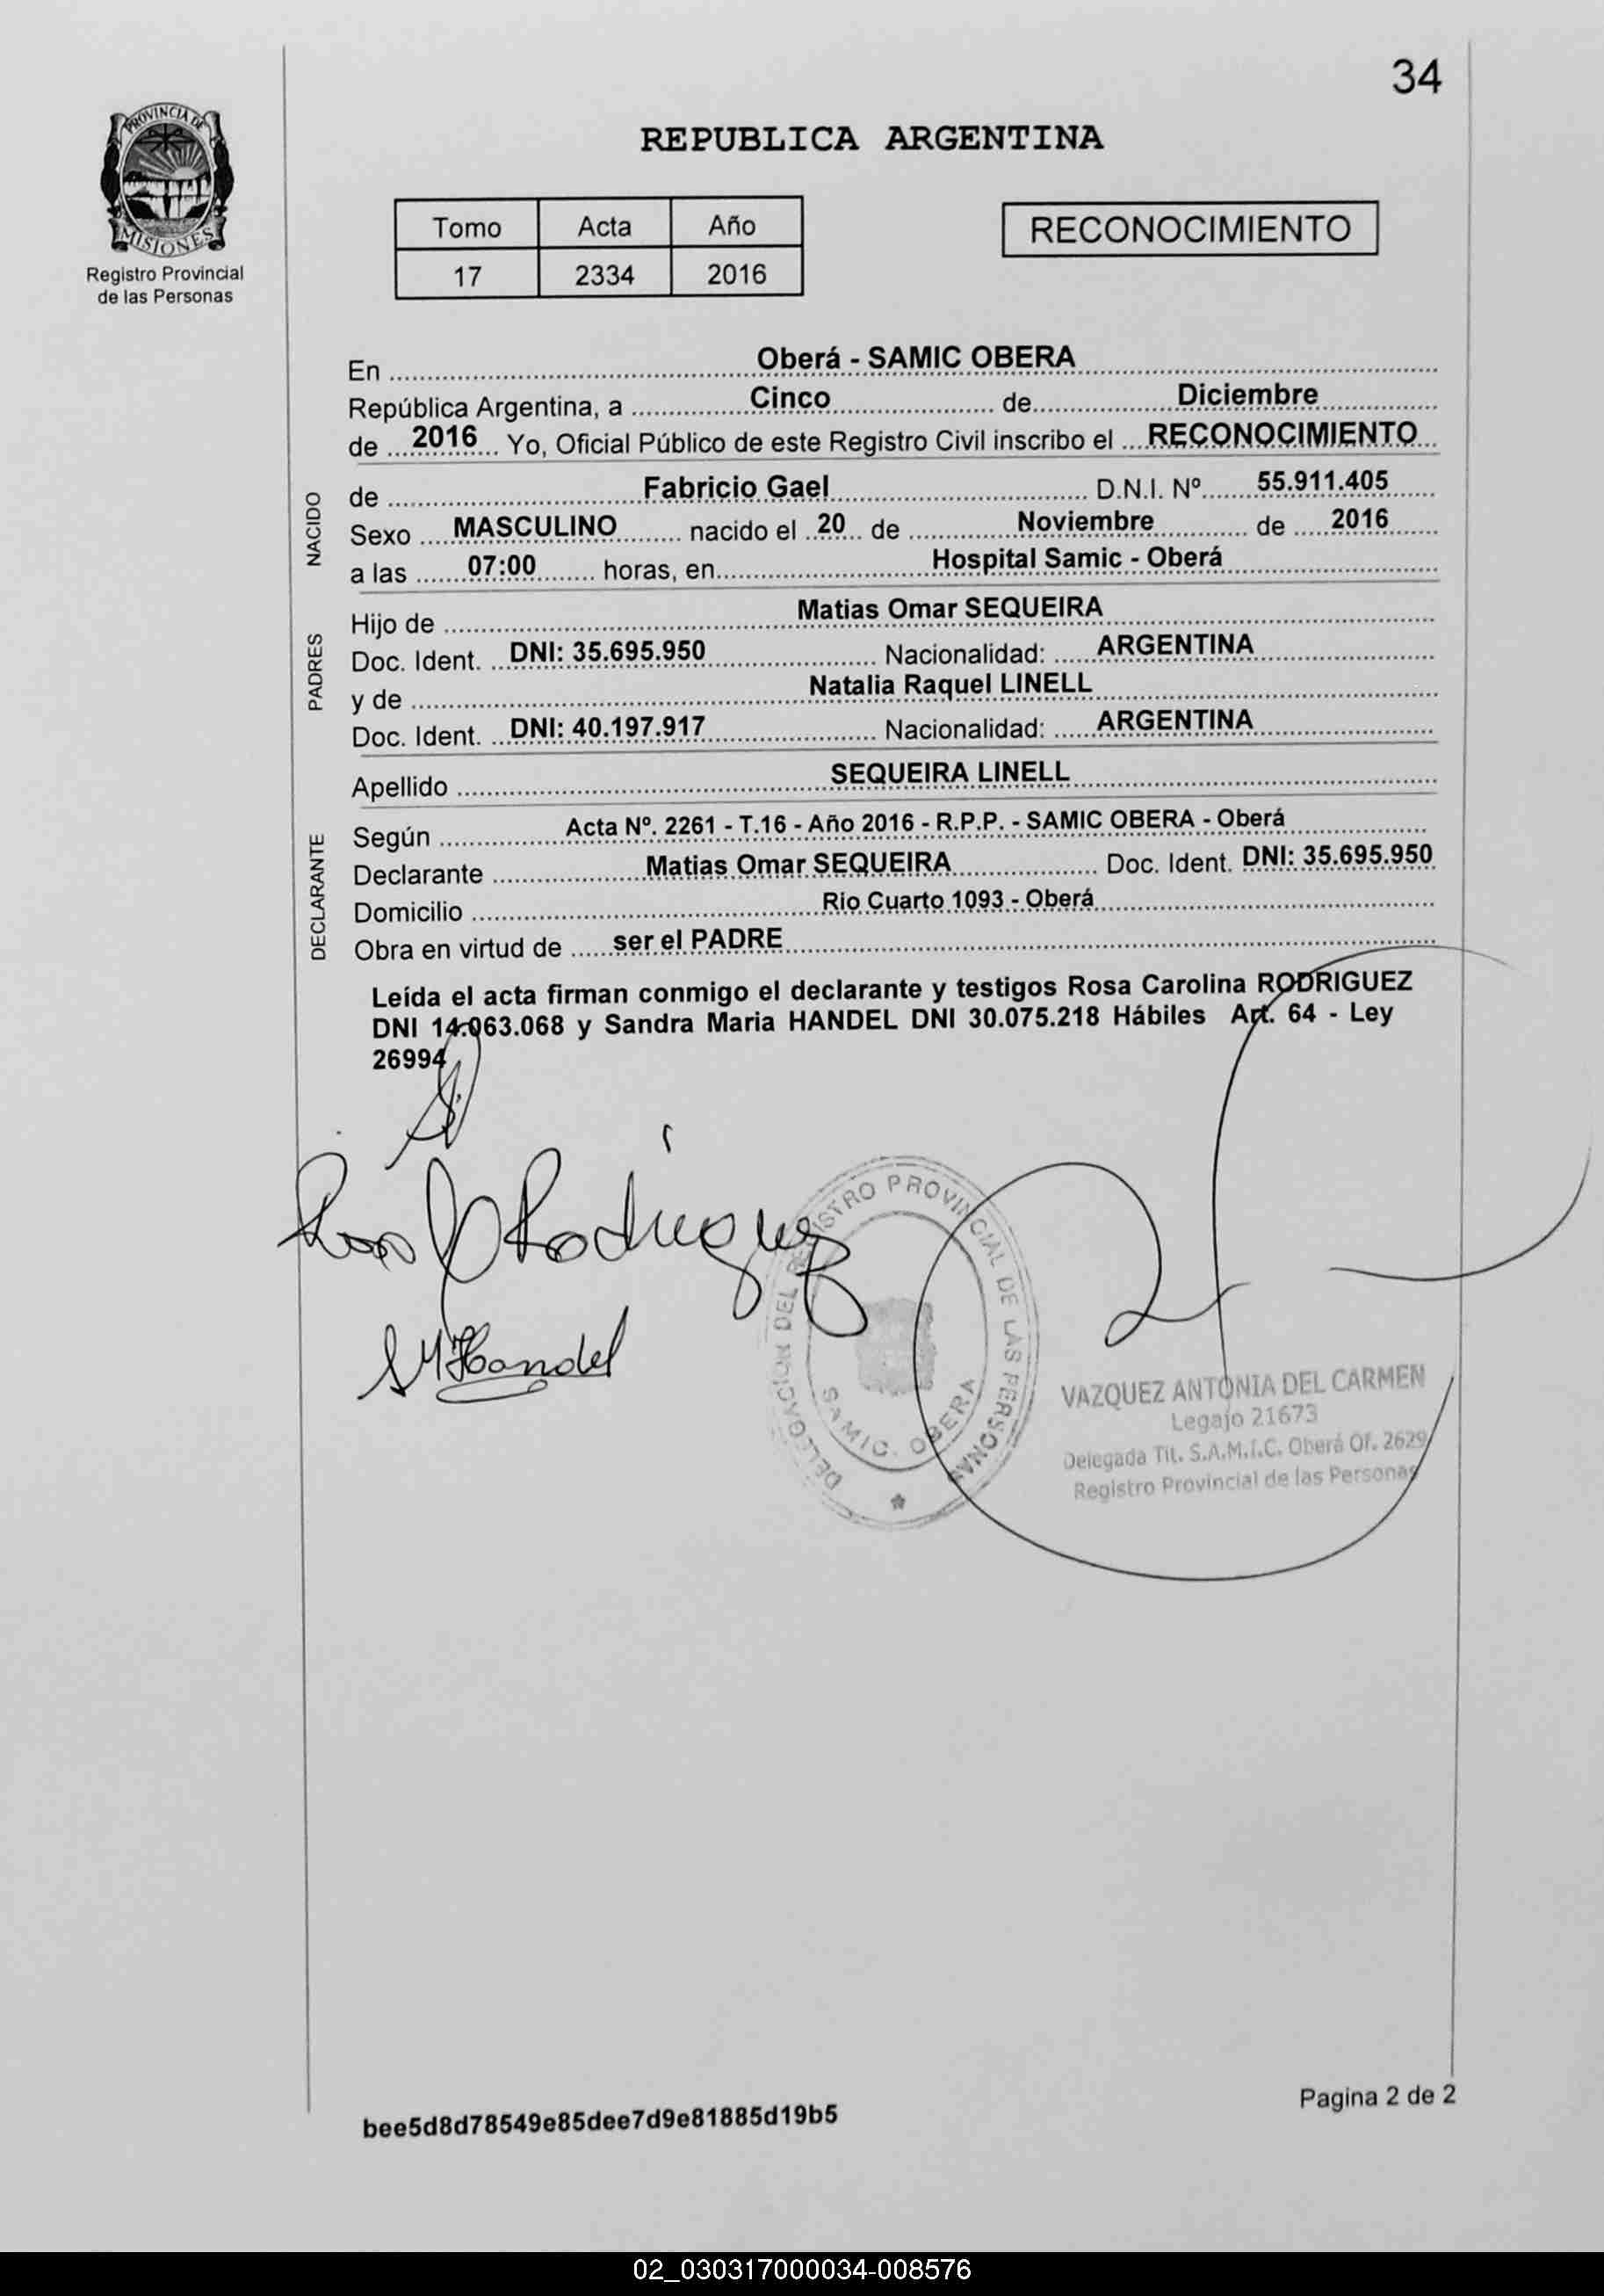 34
PROVINCIA DE
MISIONES
Registro Provincial
de las Personas
REPUBLICA ARGENTINA
Tomo Acta Año
17 2334 2016
RECONOCIMIENTO
En Oberá - SAMIC OBERA
República Argentina, a Cinco de Diciembre
de 2016 Yo, Oficial Público de este Registro Civil inscribo el RECONOCIMIENTO
NACIDO
de Fabricio Gael D.N.I. Nº 55.911.405
Sexo MASCULINO nacido el 20 de Noviembre de 2016
a las 07:00 horas, en Hospital Samic - Oberá
PADRES
Hijo de Matias Omar SEQUEIRA
Doc. Ident. DNI: 35.695.950 Nacionalidad: ARGENTINA
y de Natalia Raquel LINELL
Doc. Ident. DNI: 40.197.917 Nacionalidad: ARGENTINA
Apellido SEQUEIRA LINELL
DECLARANTE
Según Acta Nº. 2261 - T.16 - Año 2016 - R.P.P. - SAMIC OBERA - Oberá
Declarante Matias Omar SEQUEIRA Doc. Ident. DNI: 35.695.950
Domicilio Rio Cuarto 1093 - Oberá
Obra en virtud de ser el PADRE
Leída el acta firman conmigo el declarante y testigos Rosa Carolina RODRIGUEZ
DNI 14.063.068 y Sandra Maria HANDEL DNI 30.075.218 Hábiles Art. 64 - Ley
26994
Rosa C Rodriguez
S M Handel
DELEGACION DEL REGISTRO PROVINCIAL DE LAS PERSONAS
SAMIC. OBERA
VAZQUEZ ANTONIA DEL CARMEN
Legajo 21673
Delegada Tit. S.A.M.I.C. Oberá Of. 2629
Registro Provincial de las Personas
bee5d8d78549e85dee7d9e81885d19b5
Pagina 2 de 2
02_030317000034-008576